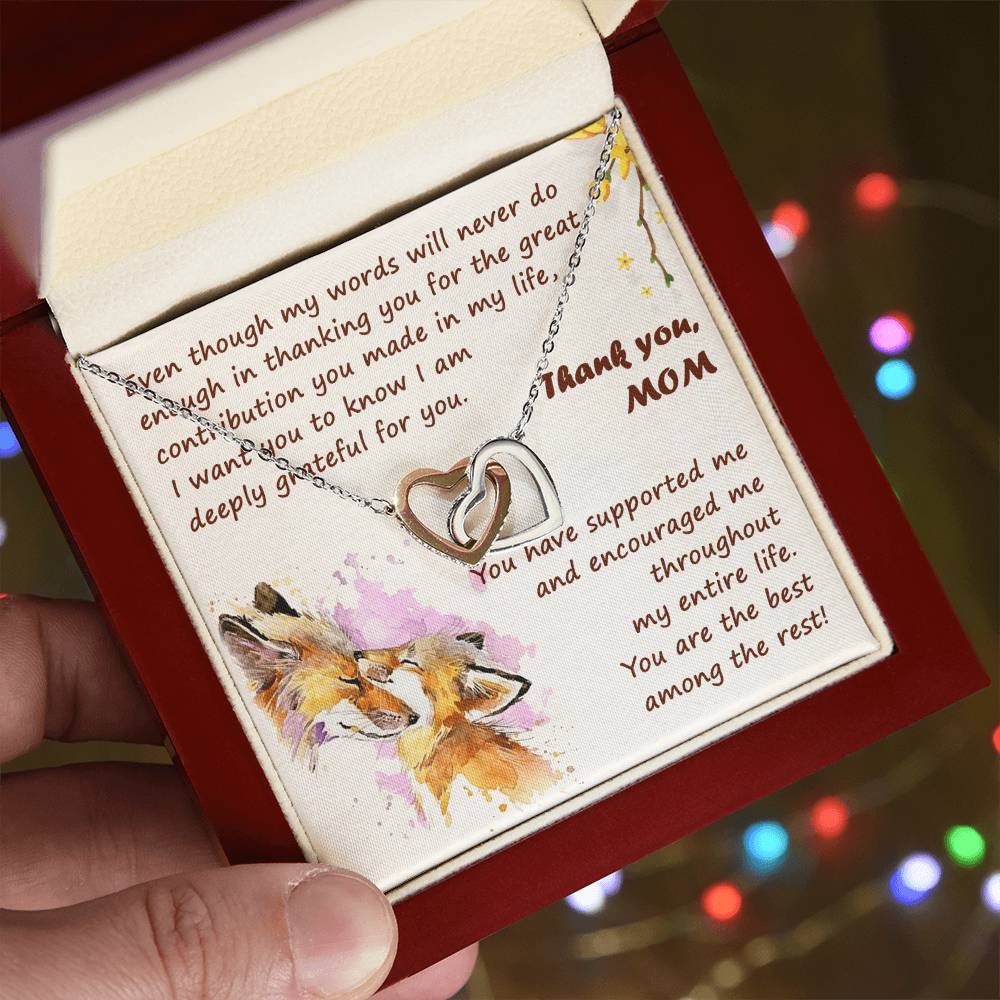 Even though my words will never do
enough in thanking you for the great
contribution you made in my life,
I want you to know I am
deeply grateful for you.
Thank you,
MOM
You have supported me
and encouraged me
throughout
my entire life.
You are the best
among the rest!